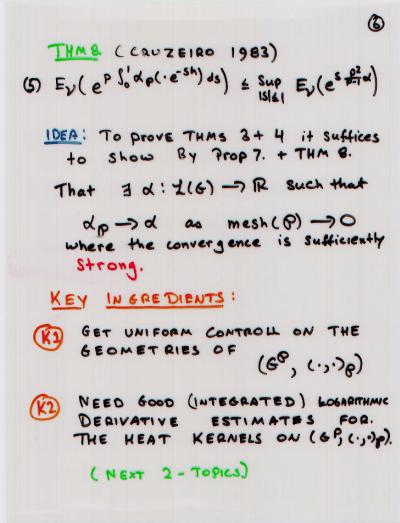 ⑥
THM 8 (CRUZEIRO 1983)
(5) E_ν(e^{p ∫_0^1 α_p(· e^{-sh}) ds}) ≤ sup_{|s|≤1} E_ν(e^{s \frac{p^2}{p-1} α})
IDEA: To prove THMS 3+4 it suffices
to show By Prop 7. + THM 8.
That ∃ α: 𝓛(G) → ℝ such that
α_P → α as mesh(P) → 0
where the convergence is sufficiently
strong.
KEY INGREDIENTS:
K1 GET UNIFORM CONTROLL ON THE
GEOMETRIES OF
(G^P, (·,·)_P)
K2 NEED GOOD (INTEGRATED) LOGARITHMIC
DERIVATIVE ESTIMATES FOR.
THE HEAT KERNELS ON (G^P, (·,·)_P).
(NEXT 2-TOPICS)